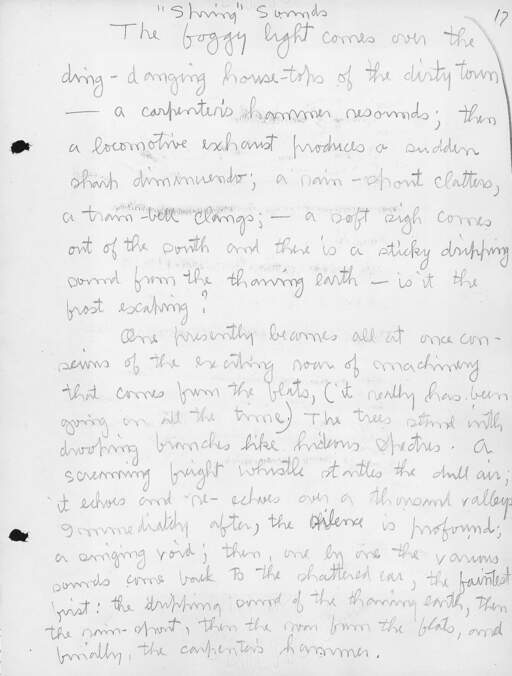 "Spring" Sounds
17
The foggy light comes over the
ding-danging house-tops of the dirty town
— a carpenter's hammer resounds; then
a locomotive exhaust produces a sudden
sharp diminuendo; a rain-spout clatters,
a train-bell clangs; — a soft sigh comes
out of the south and there is a sticky dripping
sound from the thawing earth — is it the
frost escaping?
One presently becomes all at once con-
scious of the exciting roar of machinery
that comes from the flats, (it really has been
going on all the time) The trees stand with
drooping branches like hideous spectres. A
screaming freight whistle startles the dull air;
it echoes and re-echoes over a thousand valleys
Immediately after, the silence is profound;
a singing void; then, one by one the various
sounds come back to the shattered ear, the faintest
first: the dripping sound of the thawing earth, then
the rain-spout, then the roar from the flats, and
finally, the carpenter's hammer.